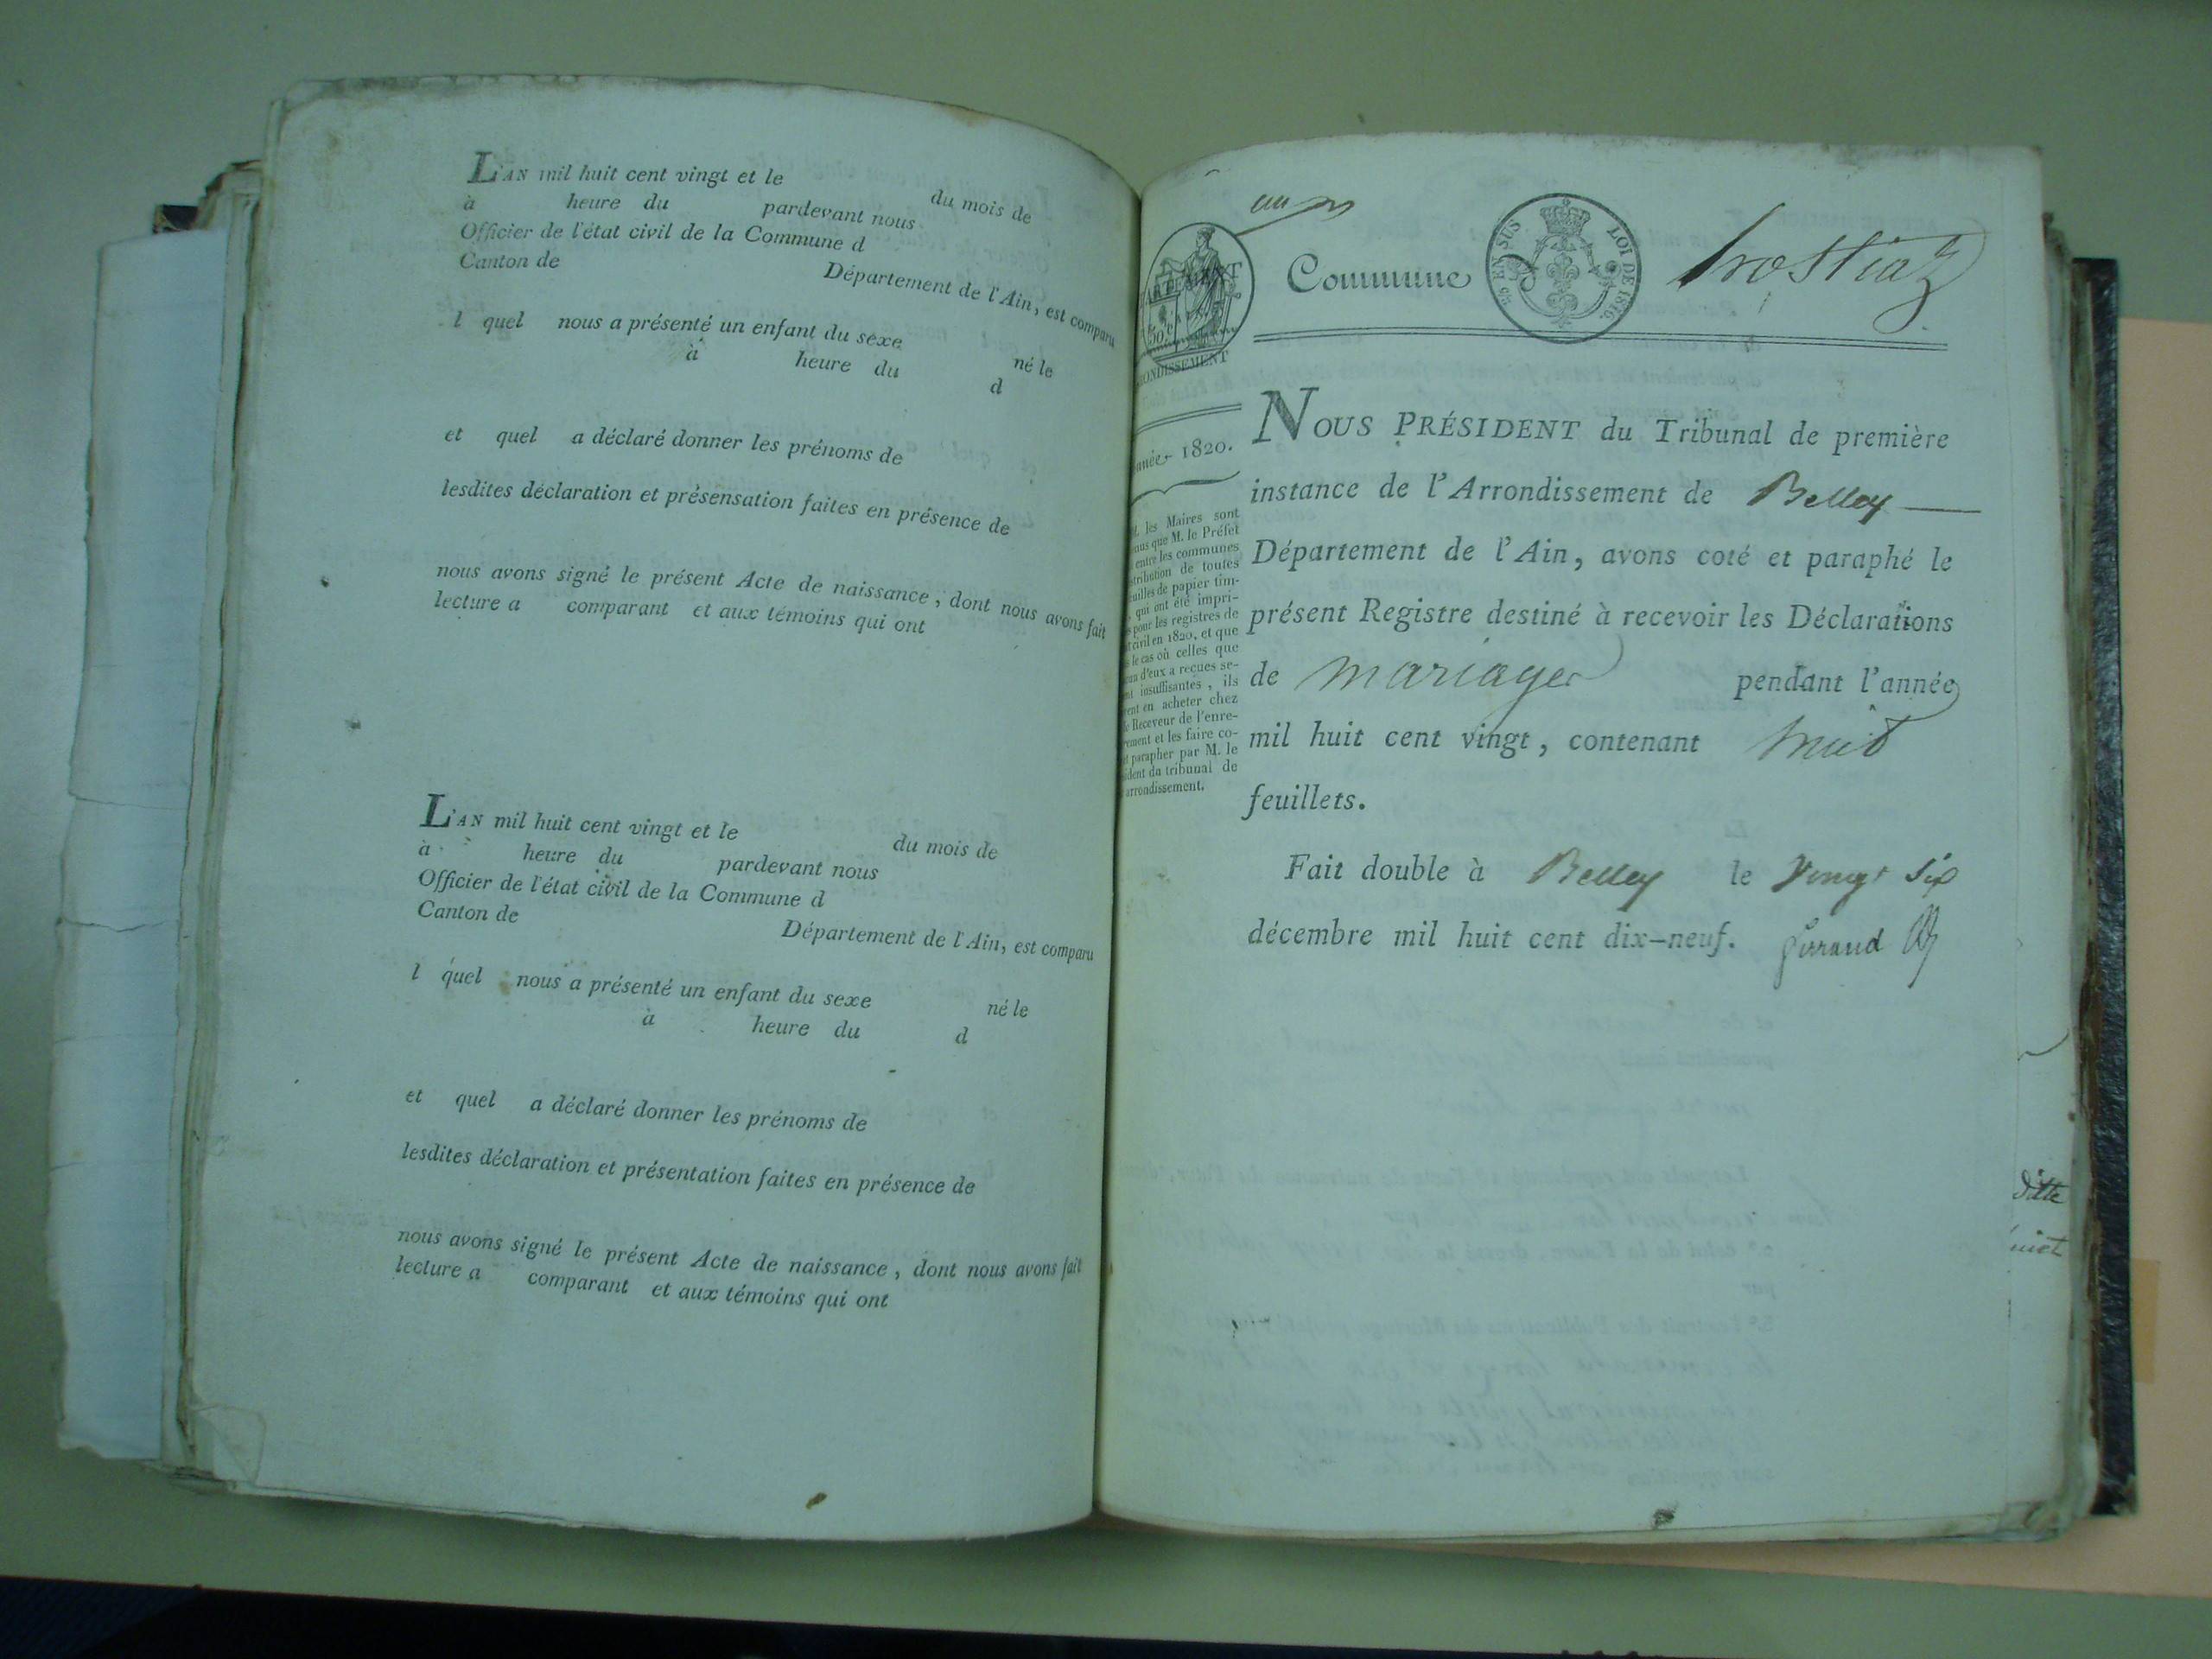 L'AN mil huit cent vingt et le du mois de
à heure du pardevant nous
Officier de l'état civil de la Commune d
Canton de Département de l'Ain, est comparu
l quel nous a présenté un enfant du sexe né le
à heure du d
et quel a déclaré donner les prénoms de
lesdites déclaration et présensation faites en présence de
nous avons signé le présent Acte de naissance, dont nous avons fait
lecture a comparant et aux témoins qui ont
L'AN mil huit cent vingt et le du mois de
à heure du pardevant nous
Officier de l'état civil de la Commune d
Canton de Département de l'Ain, est comparu
l quel nous a présenté un enfant du sexe né le
à heure du d
et quel a déclaré donner les prénoms de
lesdites déclaration et présentation faites en présence de
nous avons signé le présent Acte de naissance, dont nous avons fait
lecture a comparant et aux témoins qui ont
EN SUS LOI DE 1816.
Commune
NOUS PRÉSIDENT du Tribunal de première
instance de l'Arrondissement de Belley
Département de l'Ain, avons coté et paraphé le
présent Registre destiné à recevoir les Déclarations
de mariages pendant l'année
mil huit cent vingt, contenant huit
feuillets.
Fait double à Belley le vingt six
décembre mil huit cent dix-neuf.
1820.
les Maires sont
que M. le Préfet
entre les communes
de toutes
de papier tim-
qui ont été impri-
pour les registres de
civil en 1820, et que
le cas où celles que
d'eux a reçues se-
insuffisantes, ils
en acheter chez
Receveur de l'enre-
et les faire co-
parapher par M. le
du tribunal de
arrondissement.